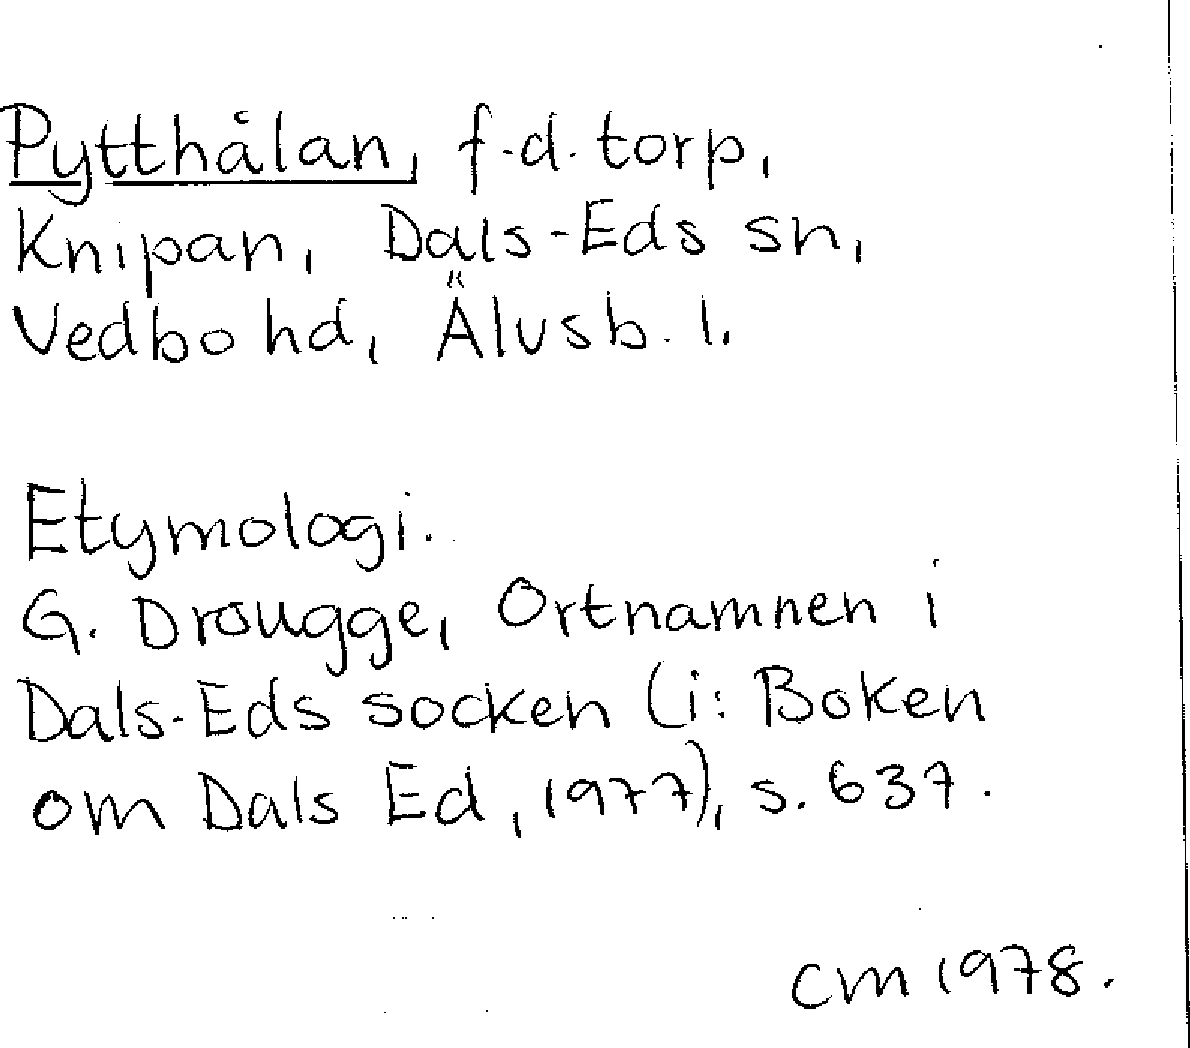 Pytthålan, f.d. torp,
Knipan, Dals-Eds sn,
Vedbo hd, Älvsb. l.
Etymologi.
G. Drougge, Ortnamnen i
Dals-Eds socken (i: Boken
om Dals Ed, 1977), s. 637.
CM 1978.